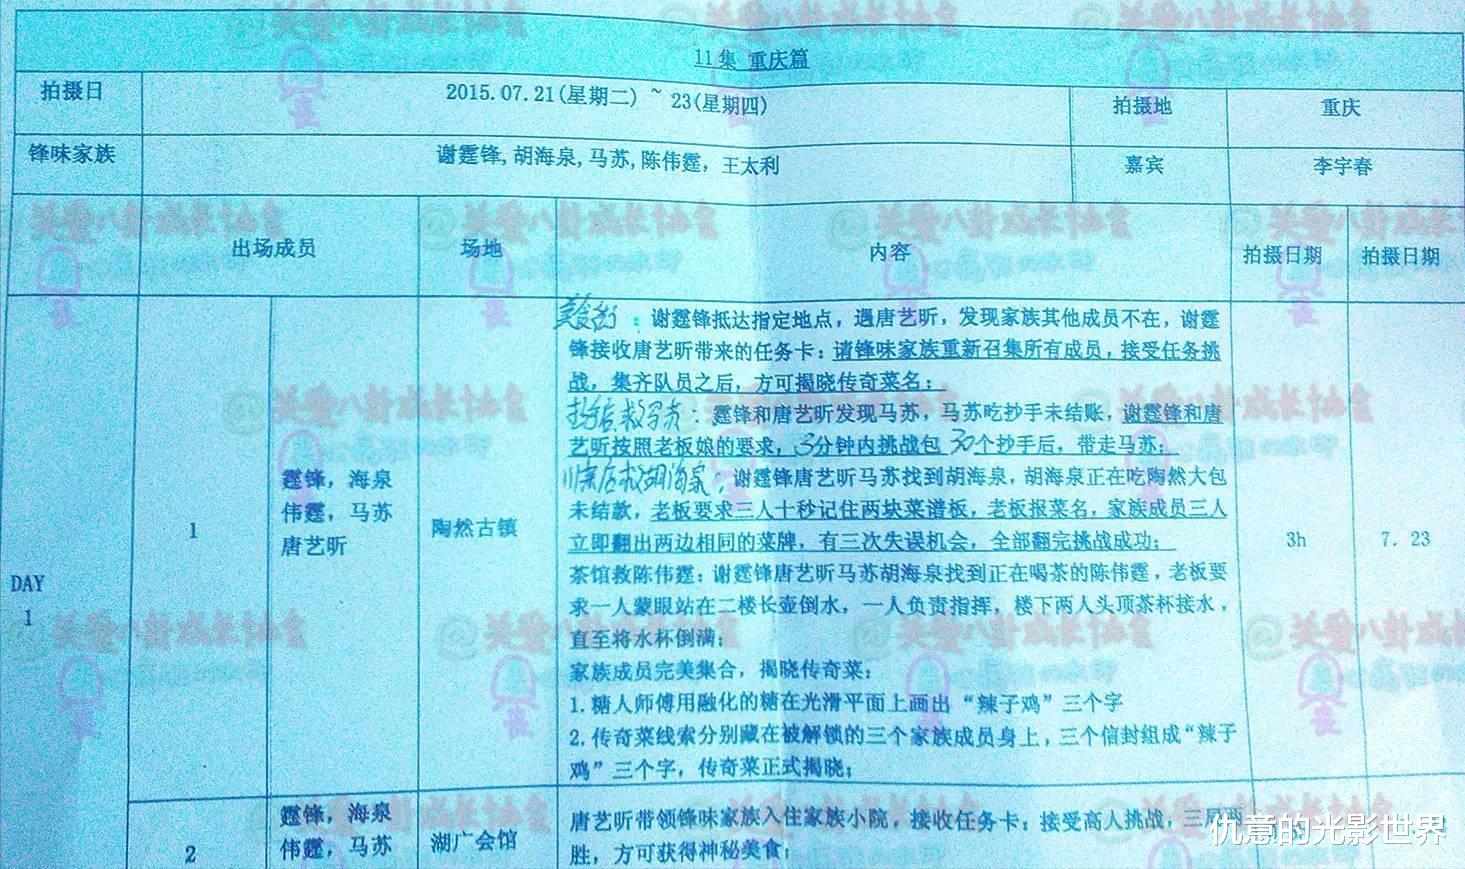 11集 重庆篇
拍摄日
2015.07.21(星期二) ~ 23(星期四)
拍摄地
重庆
锋味家族
谢霆锋,胡海泉,马苏,陈伟霆，王太利
嘉宾
李宇春
出场成员
场地
内容
拍摄日期
拍摄日期
DAY
1
1
霆锋，海泉
伟霆，马苏
唐艺昕
陶然古镇
美食街：谢霆锋抵达指定地点，遇唐艺昕，发现家族其他成员不在，谢霆
锋接收唐艺昕带来的任务卡：请锋味家族重新召集所有成员，接受任务挑
战，集齐队员之后，方可揭晓传奇菜名；
抄手店救马苏：霆锋和唐艺昕发现马苏，马苏吃抄手未结账，谢霆锋和唐
艺昕按照老板娘的要求，3分钟内挑战包30个抄手后，带走马苏；
救胡海泉：谢霆锋唐艺昕马苏找到胡海泉，胡海泉正在吃陶然大包
未结款，老板要求三人十秒记住两块菜谱板，老板报菜名，家族成员三人
立即翻出两边相同的菜牌，有三次失误机会，全部翻完挑战成功；
茶馆救陈伟霆：谢霆锋唐艺昕马苏胡海泉找到正在喝茶的陈伟霆，老板要
求一人蒙眼站在二楼长壶倒水，一人负责指挥，楼下两人头顶茶杯接水，
直至将水杯倒满；
家族成员完美集合，揭晓传奇菜：
1.糖人师傅用融化的糖在光滑平面上画出“辣子鸡”三个字
2.传奇菜线索分别藏在被解锁的三个家族成员身上，三个信封组成“辣子
鸡”三个字，传奇菜正式揭晓；
3h
7. 23
2
霆锋，海泉
伟霆，马苏
湖广会馆
唐艺昕带领锋味家族入住家族小院，接收任务卡：接受高人挑战，三局两
胜，方可获得神秘美食；
@关爱八卦成长协会
仇意的光影世界